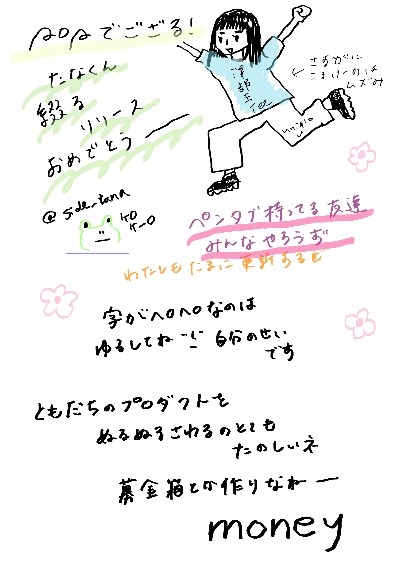 でござる!
たなくん
綴る
リリース
おめでとうー
@side_tana
ケロ
ケーロ
さすがに
こまけーのは
ムズみ
ペンタブ持ってる友達
みんなやろうぜ
わたしもたまに更新するぜ
字がヘロヘロなのは
ゆるしてね
自分のせい
です
ともだちのプロダクトを
ぬるぬるさわるのとても
たのしいネ
募金箱とか作りなねー
money